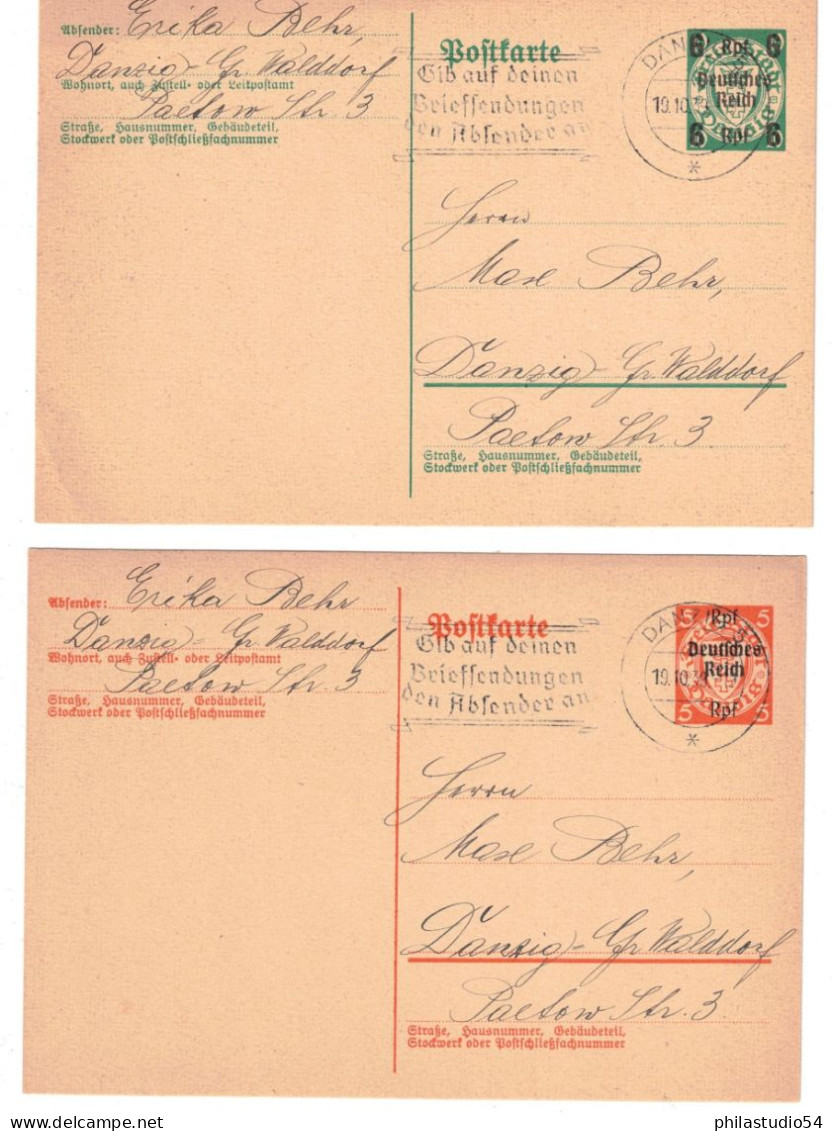 Absender: Erika Behr,
Danzig-Gr. Walddorf
Wohnort, auch Zustell- oder Leitpostamt
Paetow Str. 3
Straße, Hausnummer, Gebäudeteil,
Stockwerk oder Postschließfachnummer
Postkarte
Gib auf deinen
Briefsendungen
den Absender an
DANZIG
19.10.39
*
6 Rpf 6
Deutsches
Reich
6 Rpf 6
Herrn
Max Behr,
Danzig-Gr. Walddorf
Paetow Str. 3
Straße, Hausnummer, Gebäudeteil,
Stockwerk oder Postschließfachnummer
Absender: Erika Behr
Danzig-Gr. Walddorf
Wohnort, auch Zustell- oder Leitpostamt
Paetow Str. 3
Straße, Hausnummer, Gebäudeteil,
Stockwerk oder Postschließfachnummer
Postkarte
Gib auf deinen
Briefsendungen
den Absender an
DANZIG
19.10.39
*
5 Rpf 5
Deutsches
Reich
5 Rpf 5
Herrn
Max Behr,
Danzig-Gr. Walddorf
Paetow Str. 3.
Straße, Hausnummer, Gebäudeteil,
Stockwerk oder Postschließfachnummer
philastudio54